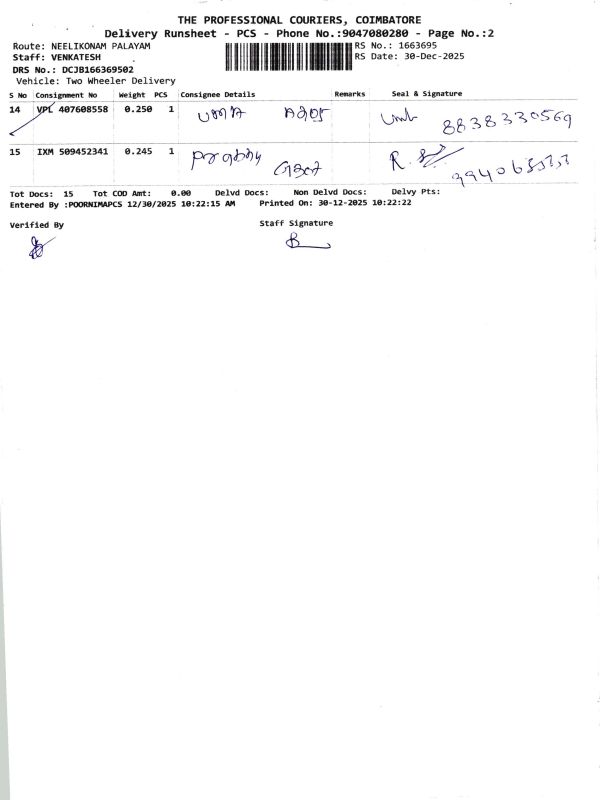 THE PROFESSIONAL COURIERS, COIMBATORE
Delivery Runsheet - PCS - Phone No.:9047080280 - Page No.:2
Route: NEELIKONAM PALAYAM RS No.: 1663695
Staff: VENKATESH RS Date: 30-Dec-2025
DRS No.: DCJB166369502
Vehicle: Two Wheeler Delivery
S No Consignment No Weight PCS Consignee Details Remarks Seal & Signature
14 VPL 407608558 0.250 1 8838330569
15 IXM 509452341 0.245 1 R.
Tot Docs: 15 Tot COD Amt: 0.00 Delvd Docs: Non Delvd Docs: Delvy Pts:
Entered By :POORNIMAPCS 12/30/2025 10:22:15 AM Printed On: 30-12-2025 10:22:22
Verified By Staff Signature